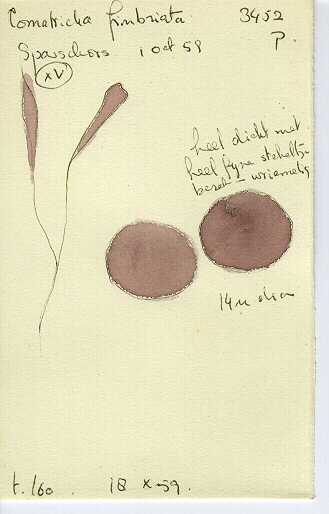 Comatricha fimbriata 3452
Sparschors 1 oct 59 P.
XV
heel dicht met
heel fijne stekeltjs
bezet – wriemelig
14 µ dia
t. 160. 18 X 59.